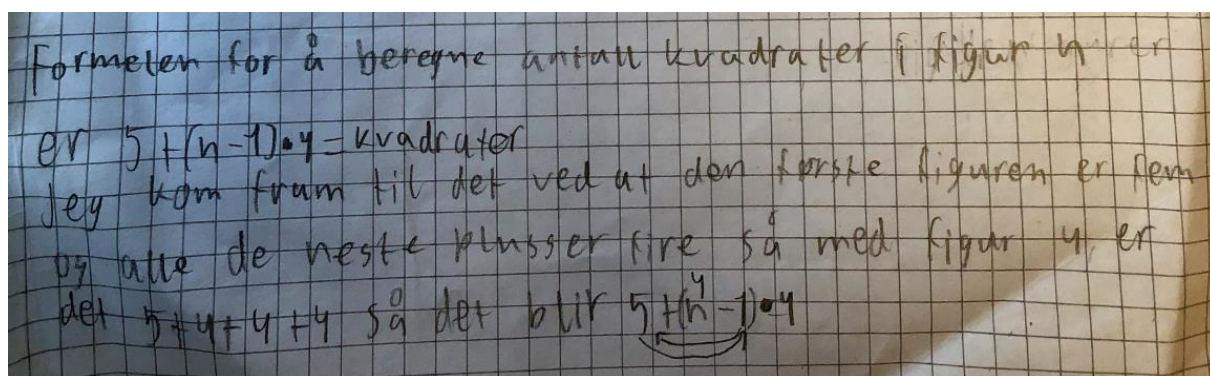 Formelen for å beregne antall kvadrater i figur n er
er 5+(n-1)•4=kvadrater
Jeg kom fram til det ved at den første figuren er fem
og alle de neste plusser fire så med figur 4 er
det 5+4+4+4 så det blir 5+(n-1)•4
4